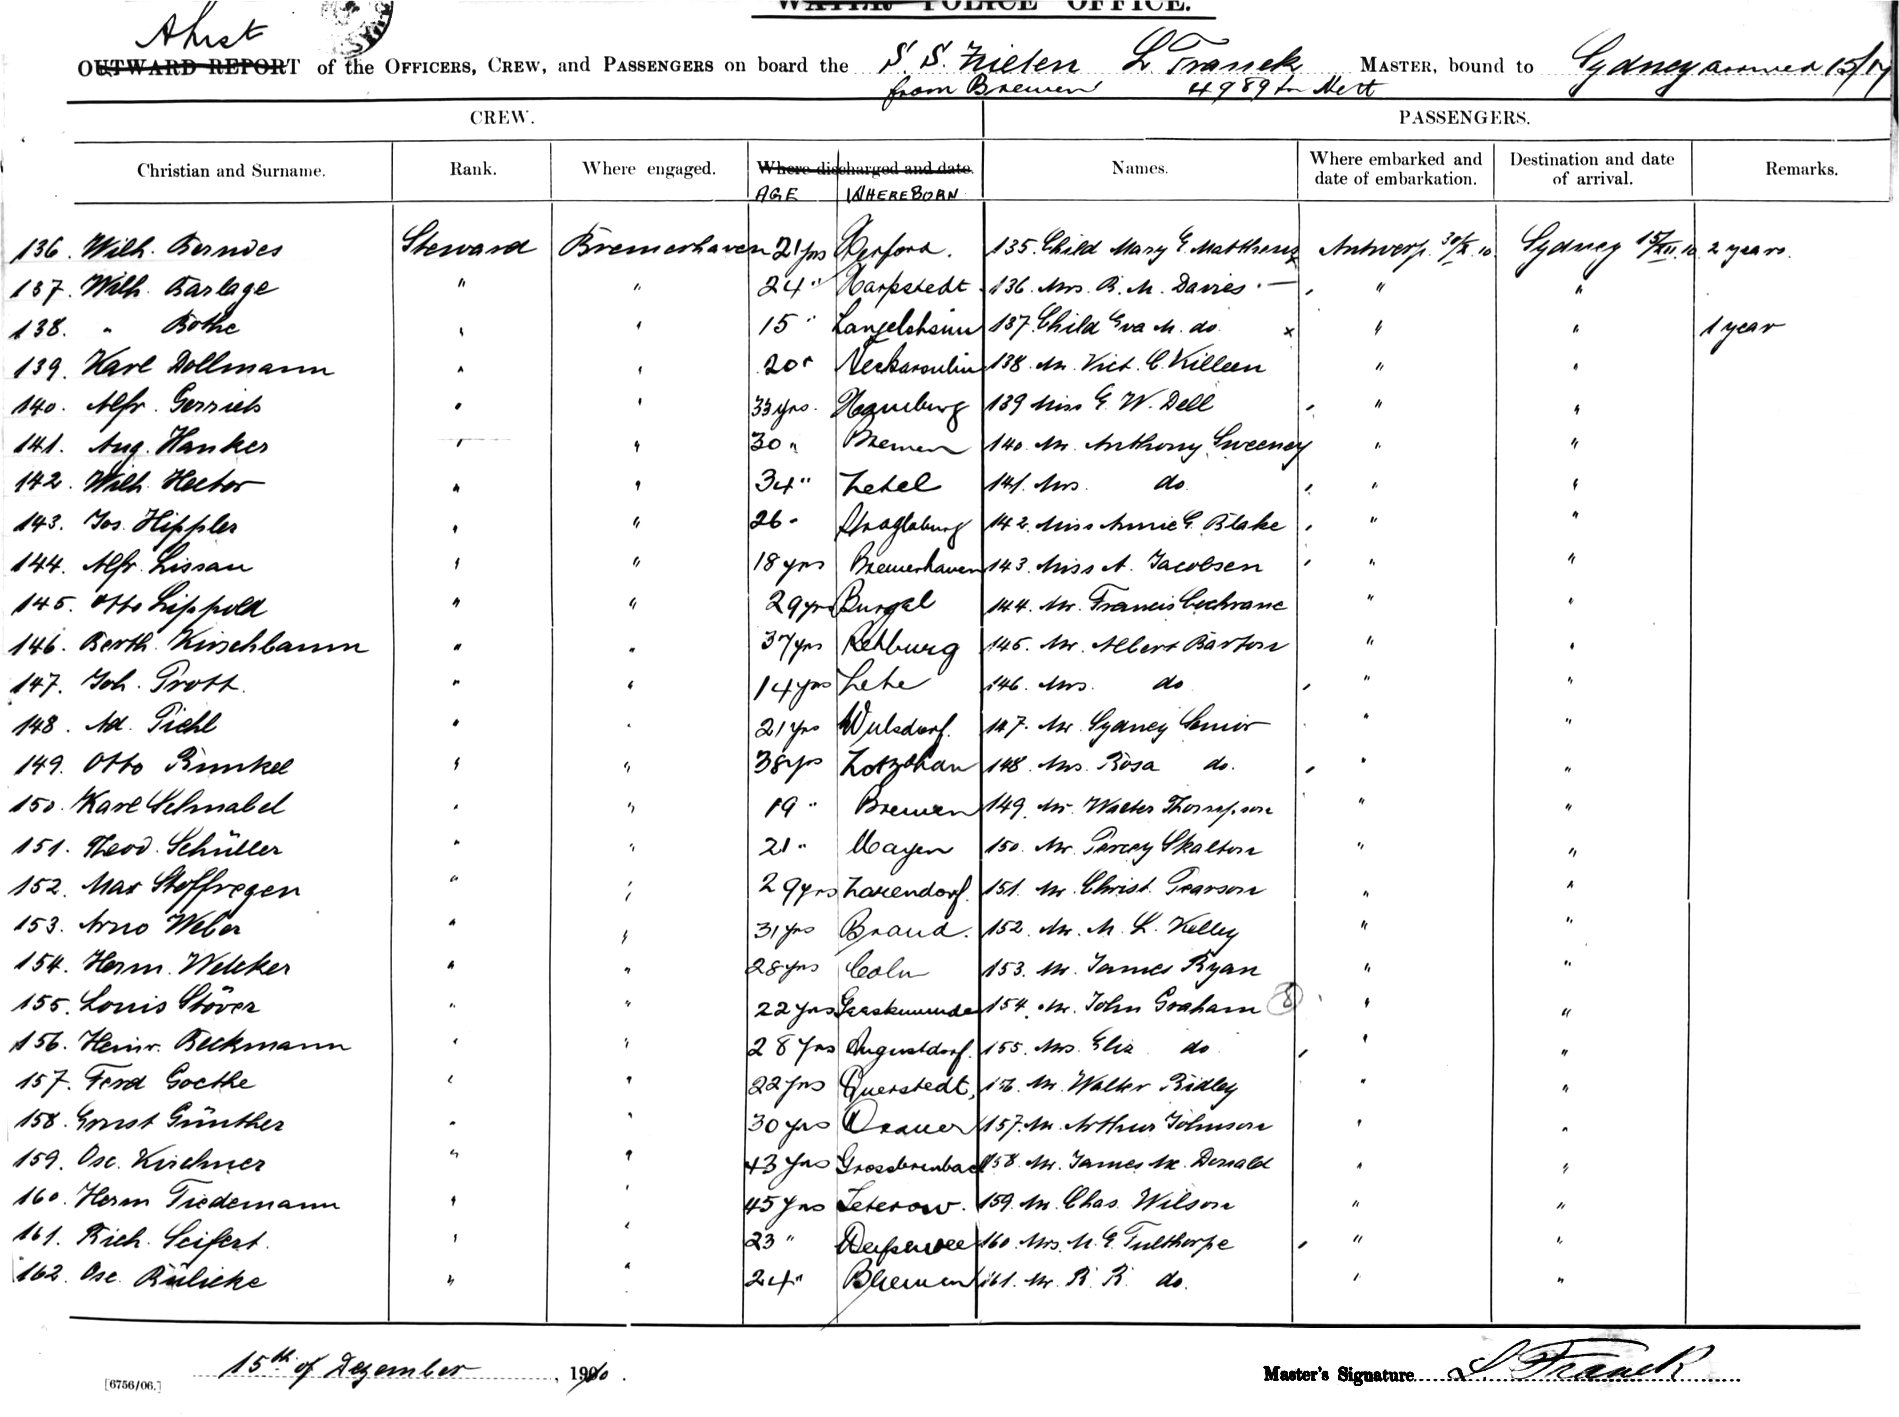 WATER POLICE OFFICE.
A list
OUTWARD REPORT of the OFFICERS, CREW, and PASSENGERS on board the S. S. Zieten L. Franck MASTER, bound to Sydney arrived 15/
from Bremen 4989 tn Nett
CREW. PASSENGERS.
Christian and Surname. Rank. Where engaged. Where discharged and date. Names. Where embarked and date of embarkation. Destination and date of arrival. Remarks.
AGE WHERE BORN
136. Wilh. Berndes Steward Bremerhaven 21 yrs Herford. 135. Child Mary E. Matthews x Antwerp. 30/X. 10. Sydney 15/XII. 10 2 years.
137. Wilh. Barlage " " 24 " Harpstedt. 136. Mrs. B. M. Davies. — " "
138. " Bothe " " 15 " Langelsheim 137. Child Eva M. do. x " " 1 year
139. Karl Dollmann " " 20 " Neckarsulm 138. Mr. Vict. C. Killeen " "
140. Alfr. Gerriets " " 33 yrs. Hamburg 139 Miss E. W. Dell " "
141. Aug. Hanker " " 30 " Bremen 140. Mr. Anthony Sweeney " "
142. Wilh. Hector " " 34 " Zetel 141. Mrs. do. " "
143. Jos. Hippler " " 26 " 142. Miss Annie E. Blake " "
144. Alfr. Lissau " " 18 yrs Bremerhaven 143. Miss A. Jacobsen " "
145. Otto Lippold " " 29 yrs Burgel 144. Mr. Francis Cochrane " "
146. Berth. Kirschbaum " " 37 yrs Rehburg 145. Mr. Albert Barton " "
147. Joh. Prott. " " 14 yrs Lehe 146. Mrs. do " "
148. Ad. Piehl " " 21 yrs Wulsdorf. 147. Mr. Sydney Senior " "
149. Otto Runkel " " 38 yrs 148. Mrs. Rosa do. " "
150. Karl Schnabel " " 19 " Bremen 149. Mr. Walter Thompson " "
151. Theod. Schüller " " 21 " Mayen 150. Mr. Percy Skalton " "
152. Max Stoffregen " " 29 yrs 151. Mr. Christ. Pearson " "
153. Arno Weber " " 31 yrs Brand. 152. Mr. M. L. Kelley " "
154. Herm. Welcker " " 28 yrs Coln 153. Mr. James Ryan " "
155. Louis Stöver " " 22 yrs 154. Mr. John Graham 8 " "
156. Heinr. Beckmann " " 28 yrs Augustdorf. 155. Mrs. Eliz do " "
157. Ferd Goethe " " 22 yrs Querstedt, 156. Mr. Walter Ridley " "
158. Ernst Günther " " 30 yrs 157. Mr. Arthur Johnson " "
159. Osc. Kirchner " " 43 yrs 158. Mr. James Mc. Donald " "
160. Herm Tiedemann " " 45 yrs Teterow. 159. Mr. Chas. Wilson " "
161. Rich. Seifert. " " 23 " 160. Mrs. M. E. Fulthorpe " "
162. Osc. Rülicke " " 24 " Bremen 161. Mr. R. R. do. " "
15th of Dezember, 1910.
[6756/06.] Master's Signature L. Franck